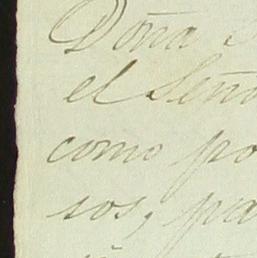 Doña
el Seño
como po
sos, pa